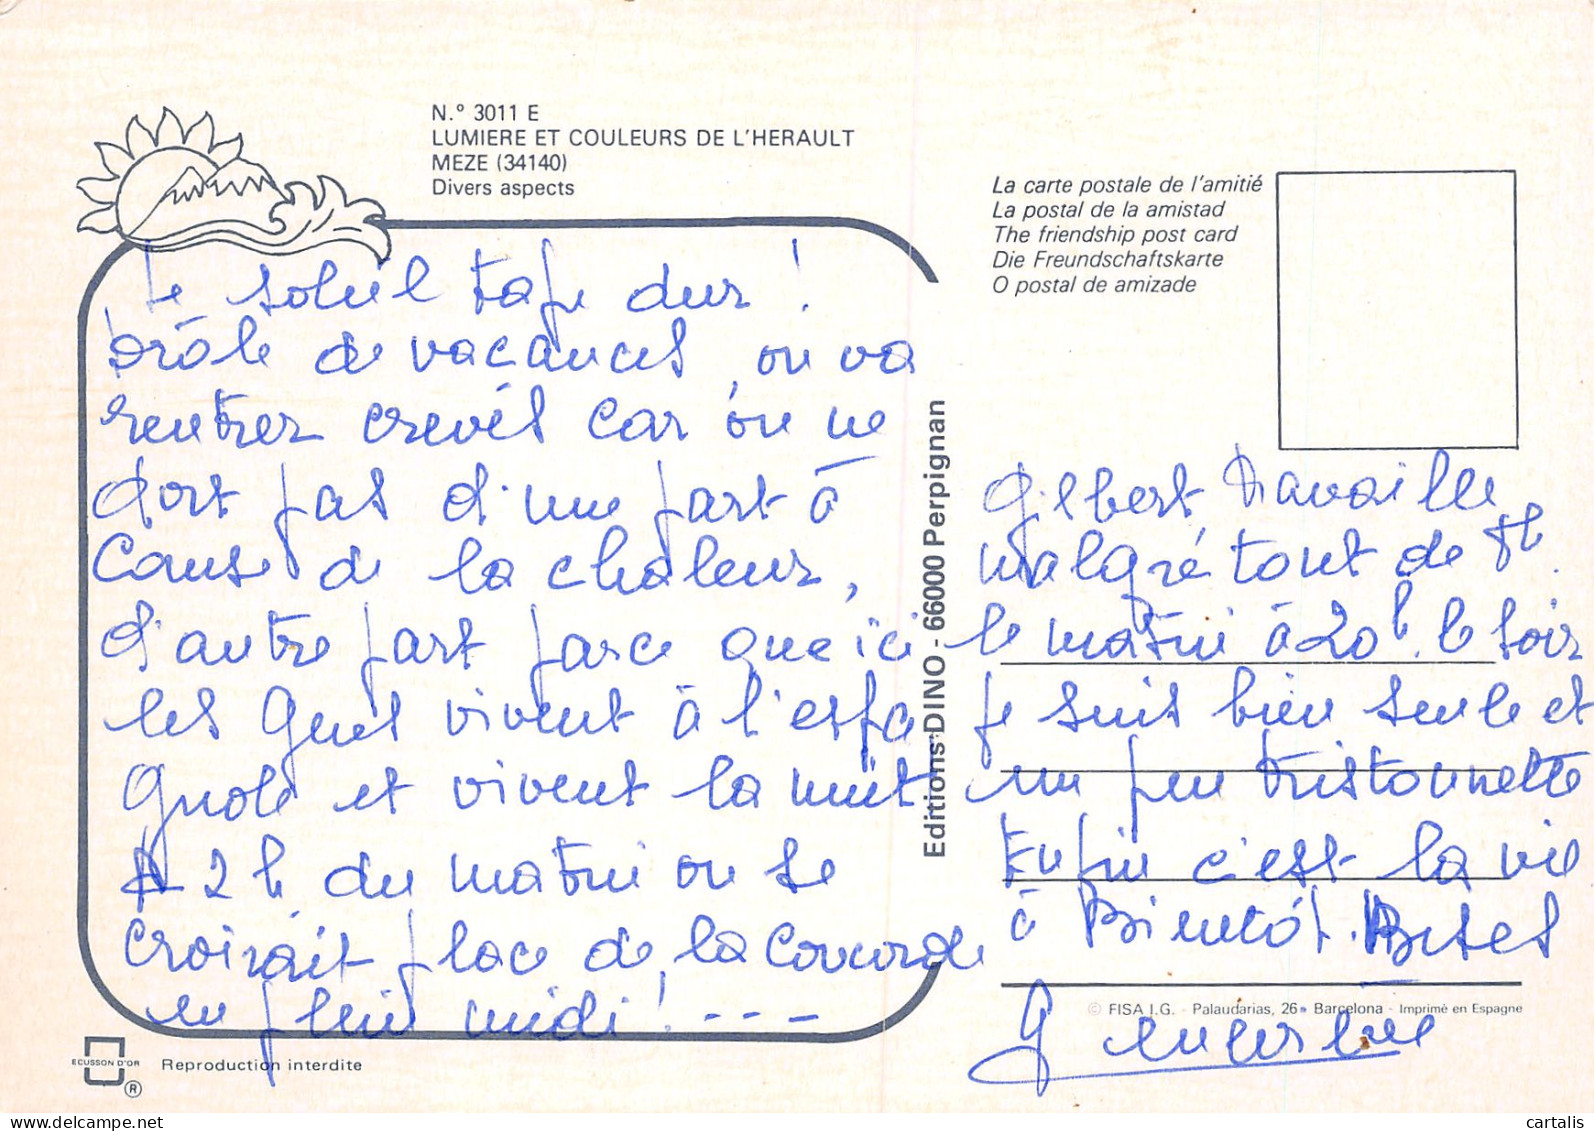 N.° 3011 E
LUMIERE ET COULEURS DE L'HERAULT
MEZE (34140)
Divers aspects
Le soleil tape dur !
Drôle de vacances, on va
rentrer crevés car on ne
dort pas d'une part à
cause de la chaleur,
d'autre part parce que ici
les gens vivent à l'espa
gnole et vivent la nuit
A 2 h du matin on se
croirait place de la Concorde
en plein midi ! ---
ECUSSON D'OR
®
Reproduction interdite
Editions DINO - 66000 Perpignan
La carte postale de l'amitié
La postal de la amistad
The friendship post card
Die Freundschaftskarte
O postal de amizade
Gilbert travaille
malgré tout de 8h.
le matin à 20h. le soir
je suis bien seule et
un peu tristounette
Enfin c'est la vie
à Bientôt. Bises
© FISA I.G. - Palaudarias, 26 - Barcelona - Imprimé en Espagne
Geneviève
cartalis